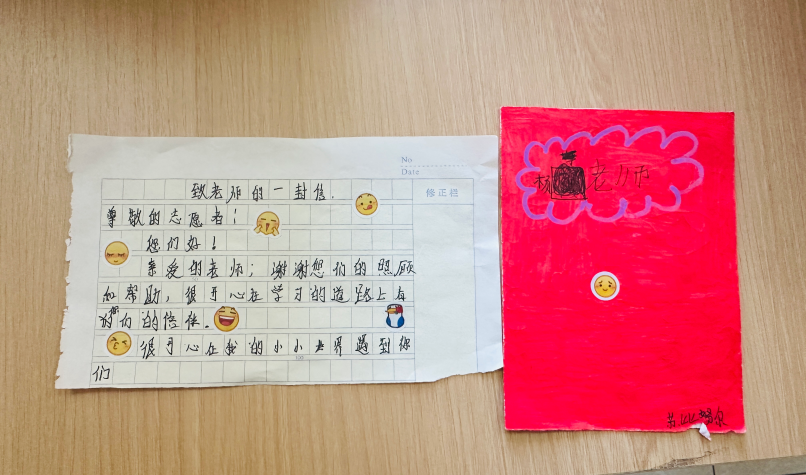 No
Date
修正栏
致老师的一封信.
尊敬的志愿者!
您们好!
亲爱的老师; 谢谢您们的照顾
和帮助, 很开心在学习的道路上有
你们的陪伴.
很开心在我的小小世界遇到你
们
杨 老师